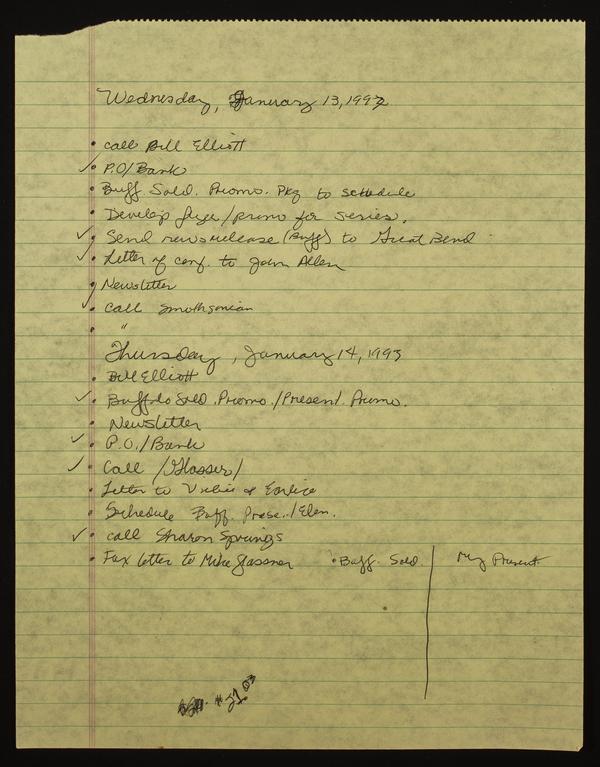 Wednesday, January 13, 1993
• Call Bill Elliott
✓• P.O/Bank
• Buff. Sold. Promo. Pkg to schedule
• Develop flyer/promo for series.
✓• Send news release (Buff) to Great Bend
✓• Letter of conf. to John Allen
• Newsletter
✓• Call Smithsonian
• "
Thursday, January 14, 1993
• Bill Elliott
✓• Buffalo Sold. Promo./Present. Promo.
• Newsletter
✓• P.O./Bank
✓• Call /Glasser/
• Letter to &
• Schedule Buff. Prese./Elem.
✓• call Sharon Springs
• Fax letter to Mike Glassner • Buff. Sold. My Present